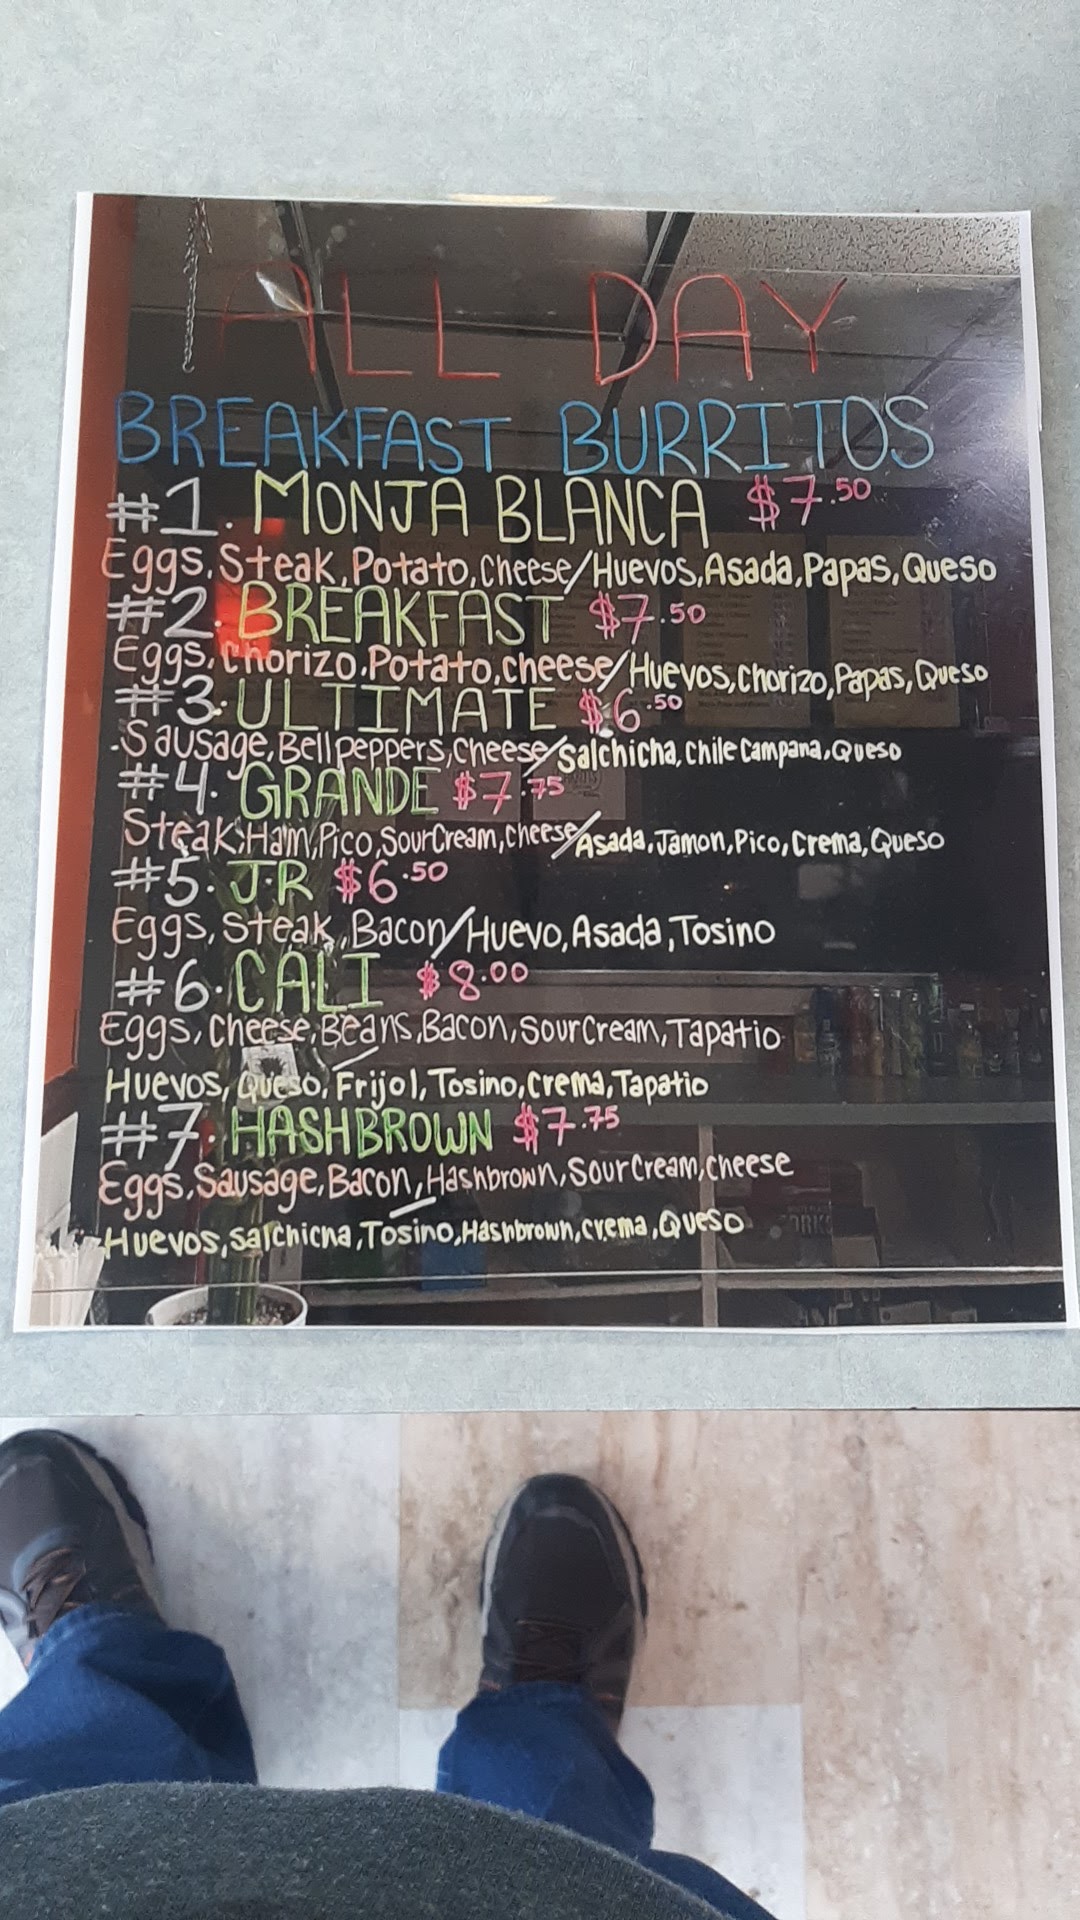 ALL DAY
BREAKFAST BURRITOS
#1. MONJA BLANCA $7.50
Eggs, Steak, Potato, Cheese/Huevos, Asada, Papas, Queso
#2. BREAKFAST $7.50
Eggs, Chorizo, Potato, cheese/Huevos, Chorizo, Papas, Queso
#3. ULTIMATE $6.50
-Sausage, Bell peppers, cheese/Salchicha, Chile Campana, Queso
#4. GRANDE $7.75
Steak, Ham, Pico, Sour Cream, cheese/Asada, Jamon, Pico, Crema, Queso
#5. J.R $6.50
Eggs, Steak, Bacon/Huevo, Asada, Tosino
#6. CALI $8.00
Eggs, Cheese, Beans, Bacon, Sour Cream, Tapatio
Huevos, Queso, Frijol, Tosino, Crema, Tapatio
#7. HASHBROWN $7.75
Eggs, Sausage, Bacon, Hashbrown, Sour Cream, Cheese
Huevos, Salchicha, Tosino, Hashbrown, crema, Queso